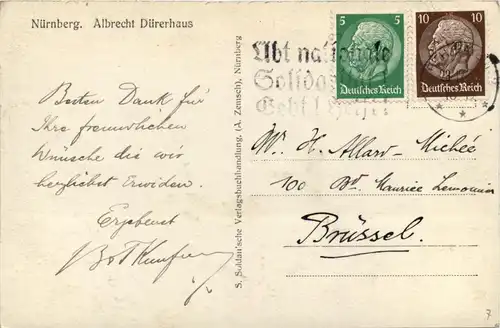 Nürnberg. Albrecht Dürerhaus
Besten Dank für
Ihre freundlichen
Wünsche die wir
herzlichst Erwidern.
Ergebenst
S. Soldan'sche Verlagsbuchhandlung. (A. Zemsch), Nürnberg
Übt nationale
Solidarität
Gebt
5 5
Deutsches Reich
10 10
Deutsches Reich
H. Allard-Michée
100 Bd. Maurice Lemonnier
Brüssel.
7